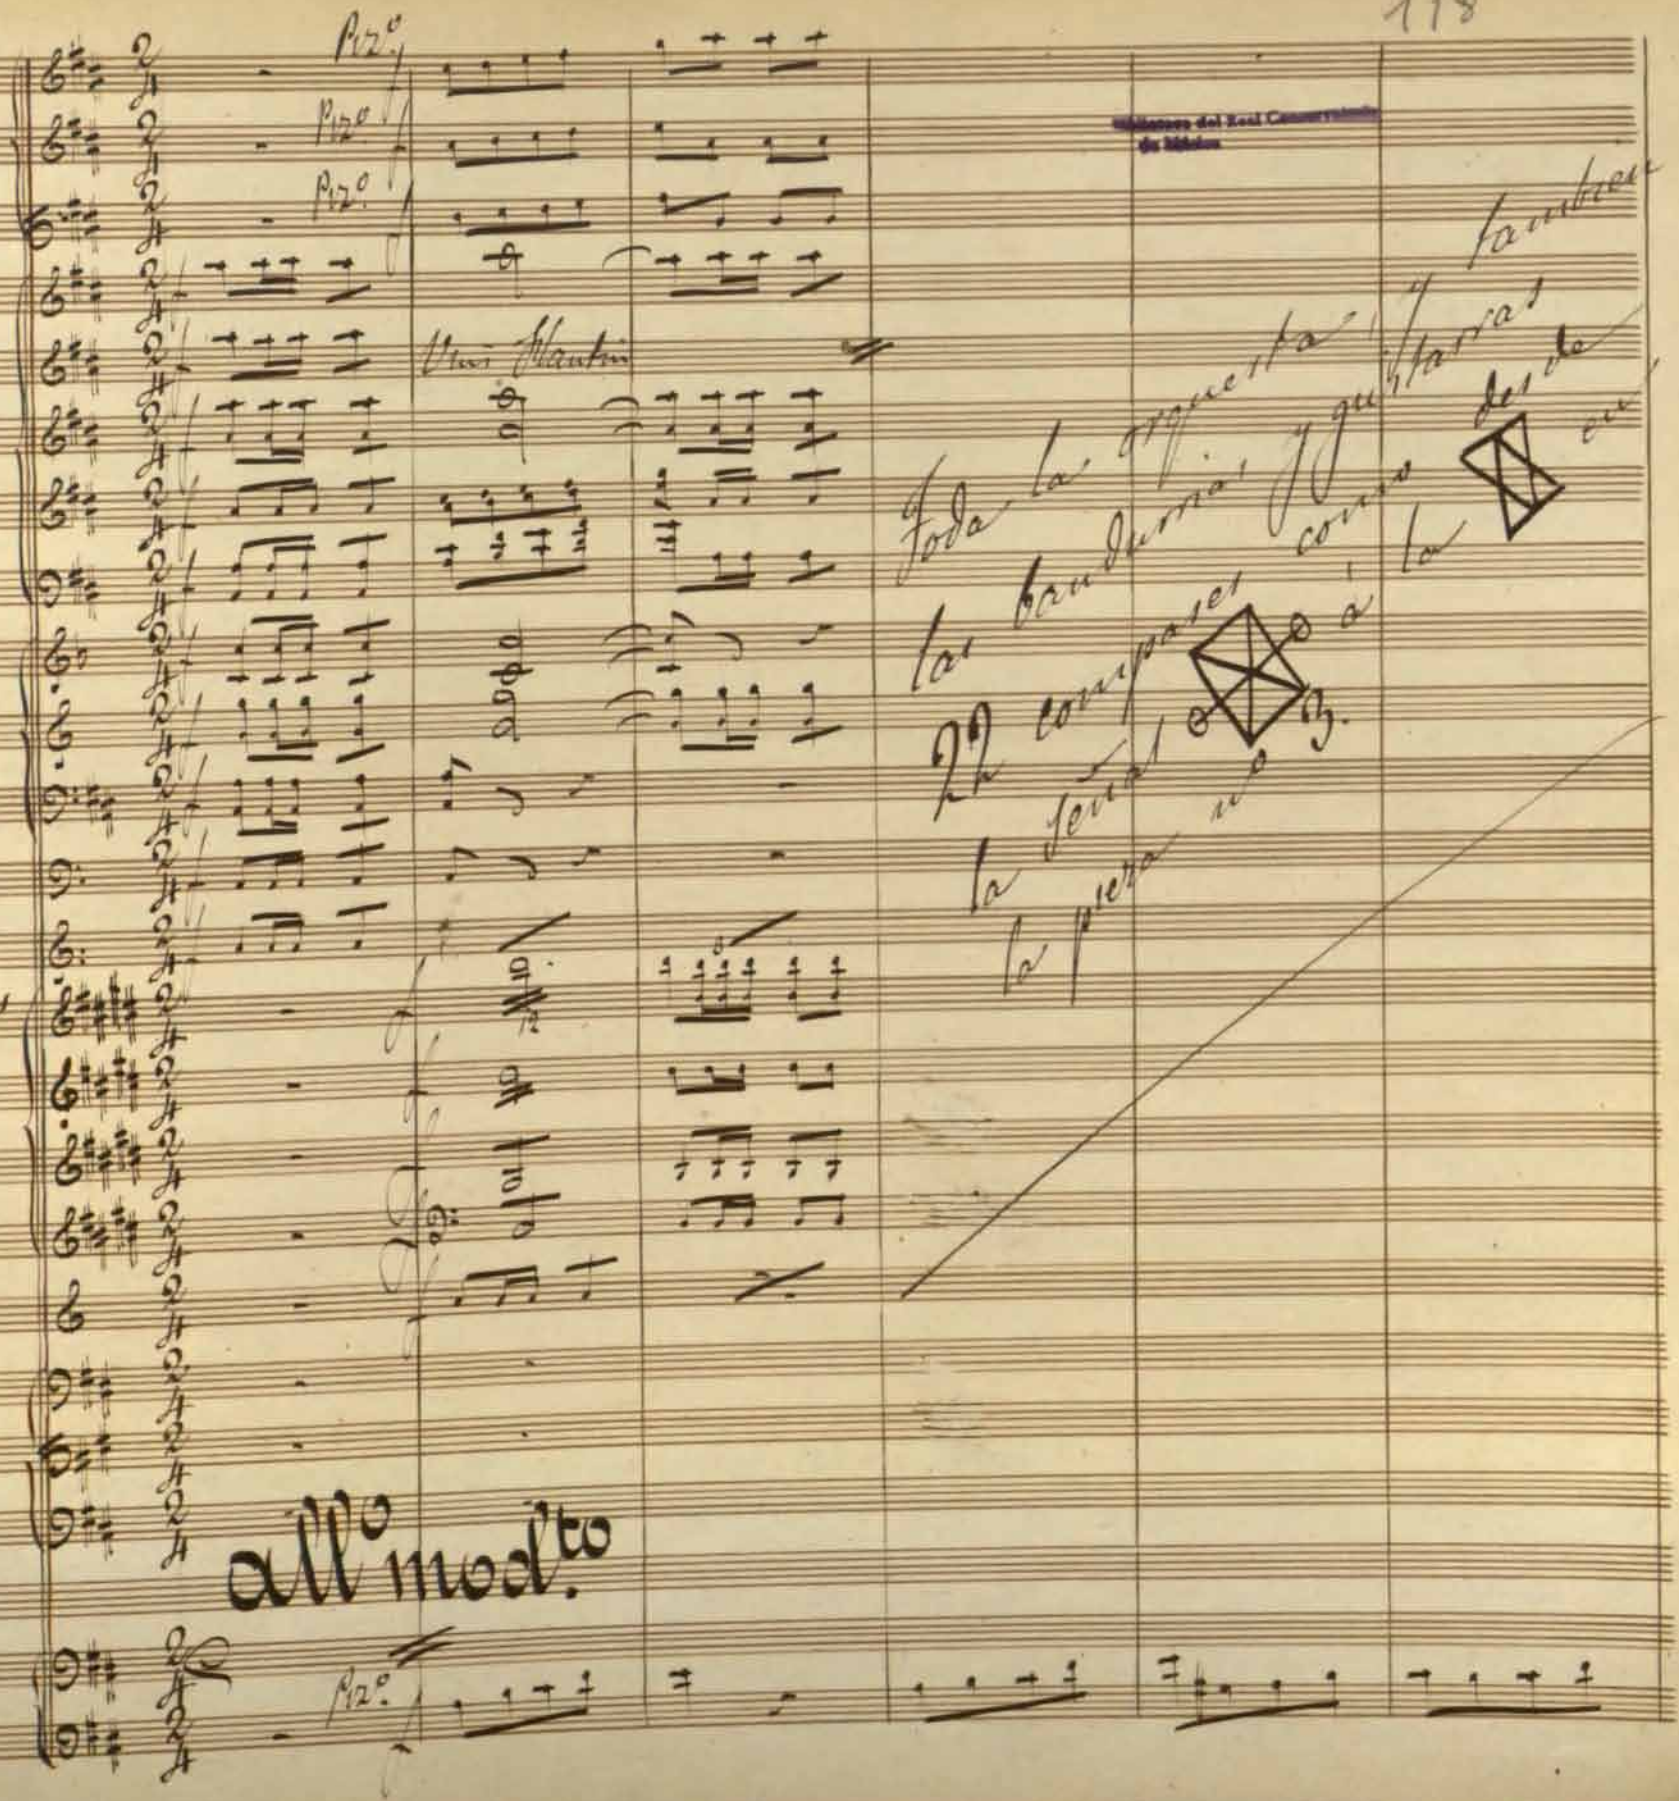 118
Pizº
Pizº
Pizº
Biblioteca del Real Conservatorio
de Música
Toda la orquesta, y tambien
las bandurrias y guitarras
22 compases como desde
la señal á la en
la pieza nº 3.
allº mod.to
Pizº